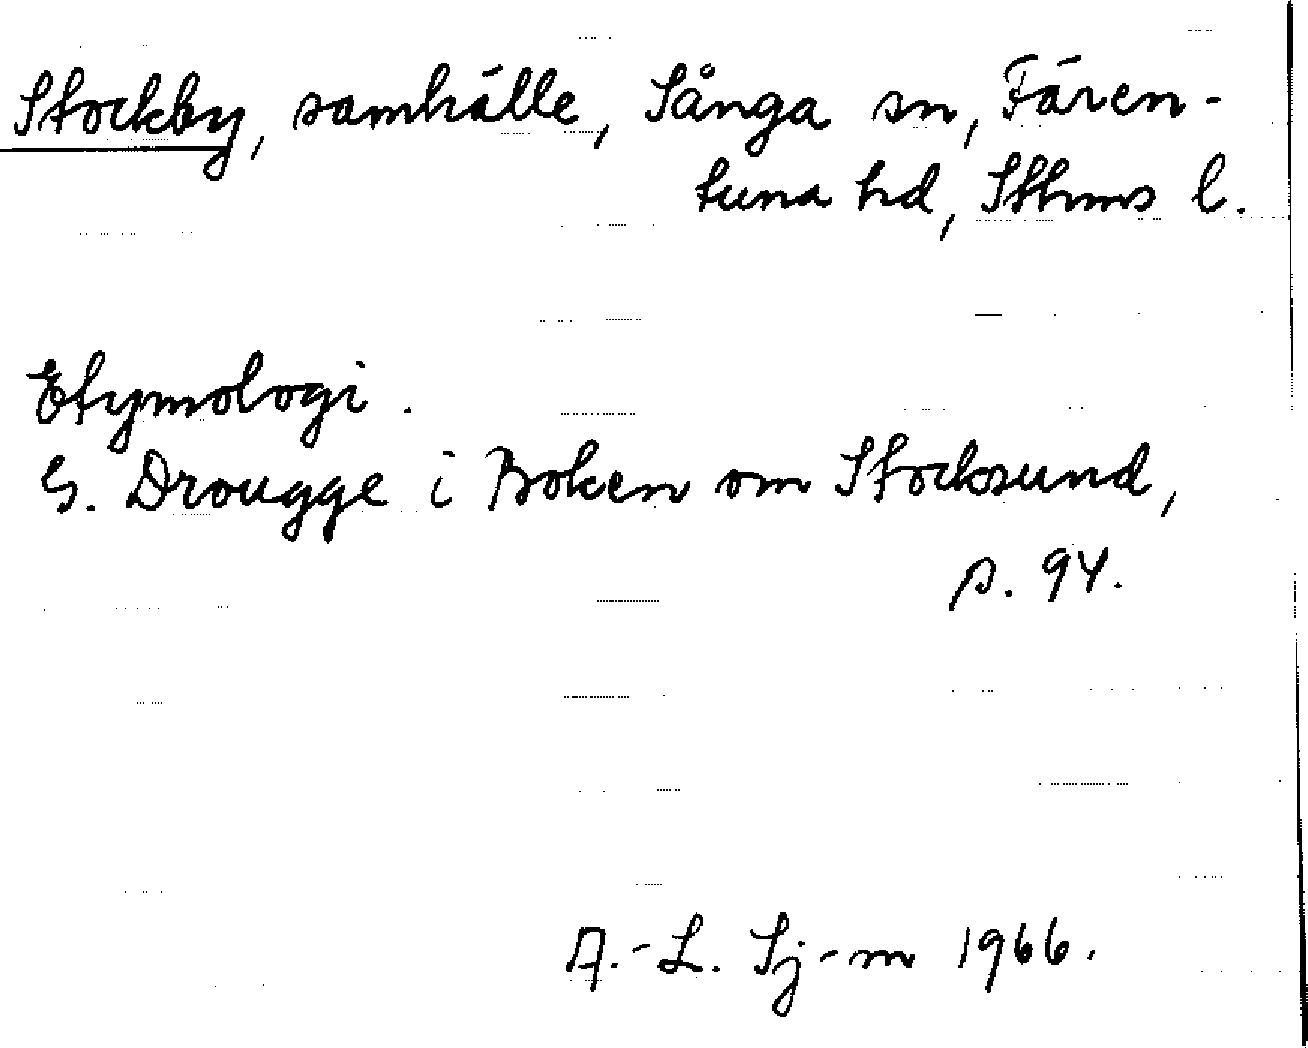 Stockby, samhälle, Sånga sn, Fären-
tuna hd, Sthms l.
Etymologi.
G. Drougge i Boken om Stocksund,
p. 94.
A.-L. Sj-m 1966.